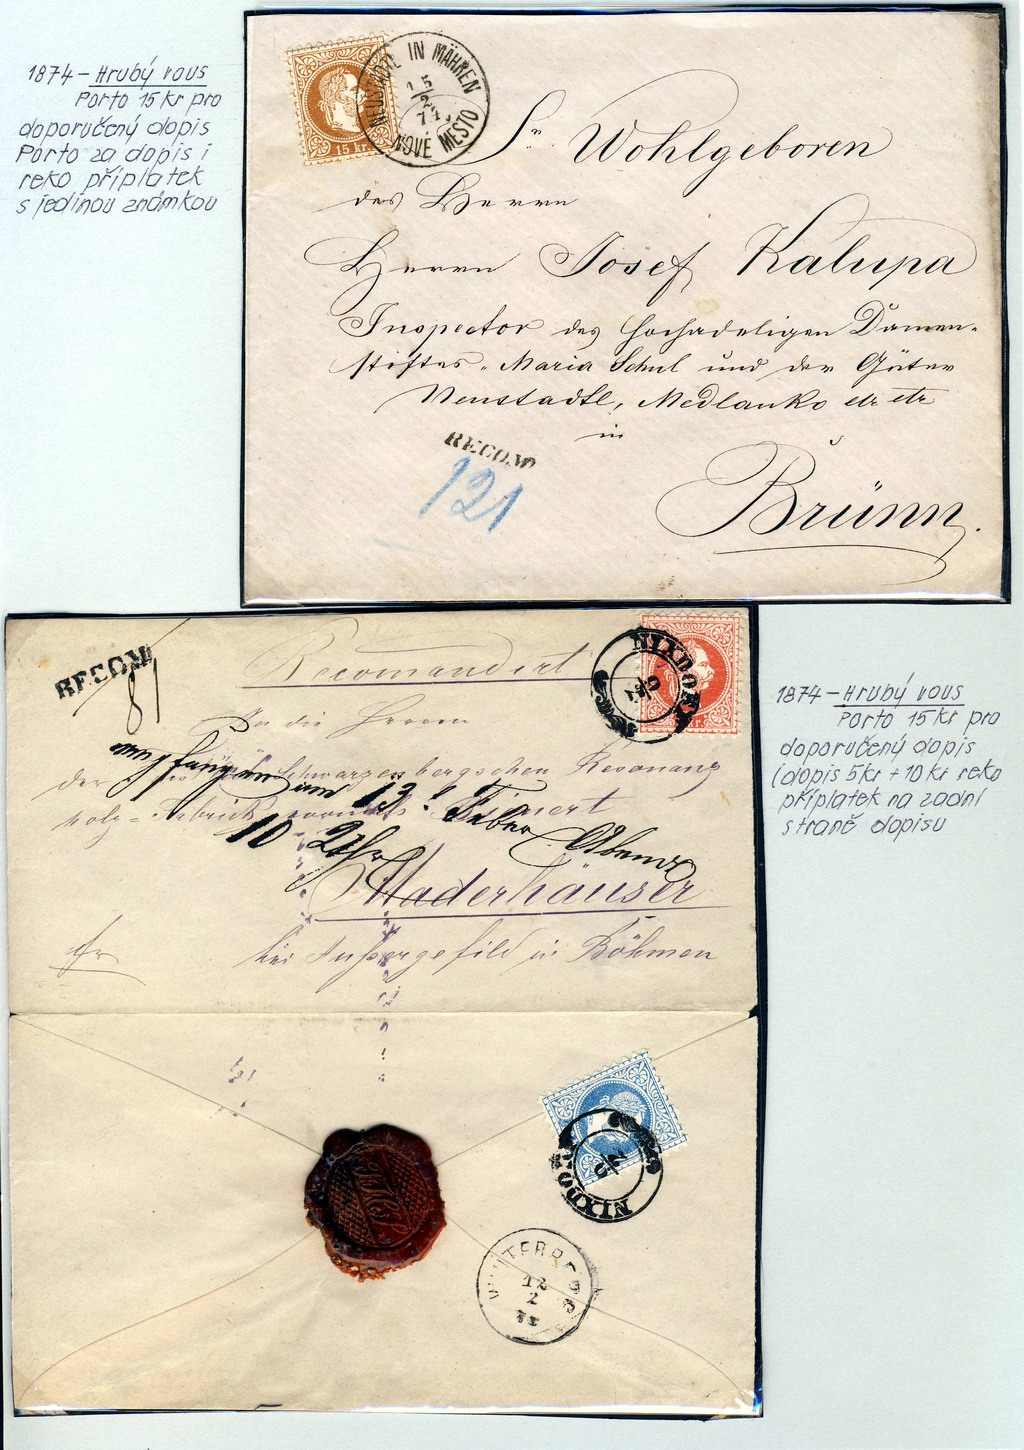 1874 – Hrubý vous
Porto 15 kr pro
doporučený dopis
Porto za dopis i
reko příplatek
s jedinou známkou
15 kr.
NEUSTADTL IN MÄHREN
NOVÉ MESTO
Sr Wohlgeboren
des Herrn
Herrn Josef Kalupa
Inspector des hochadeligen Damen-
stiftes Maria Schul und der Güter
Neustadtl, Medlanko etc etc
in
Brünn.
RECOM
121
RECOM
81
Recomandert
NIXDORF
An die Herren
der Schwarzenbergschen Resonanz
holz-Fabrik vormals Bienert
empfangen am 13! Feber Abends
10 Uhr
Maderhäuser
bei Außergefild in Böhmen
1874 – Hrubý vous
Porto 15 kr pro
doporučený dopis
(dopis 5kr + 10 kr reko
příplatek na zadní
straně dopisu
NIXDORF
WINTERBERG
12
2